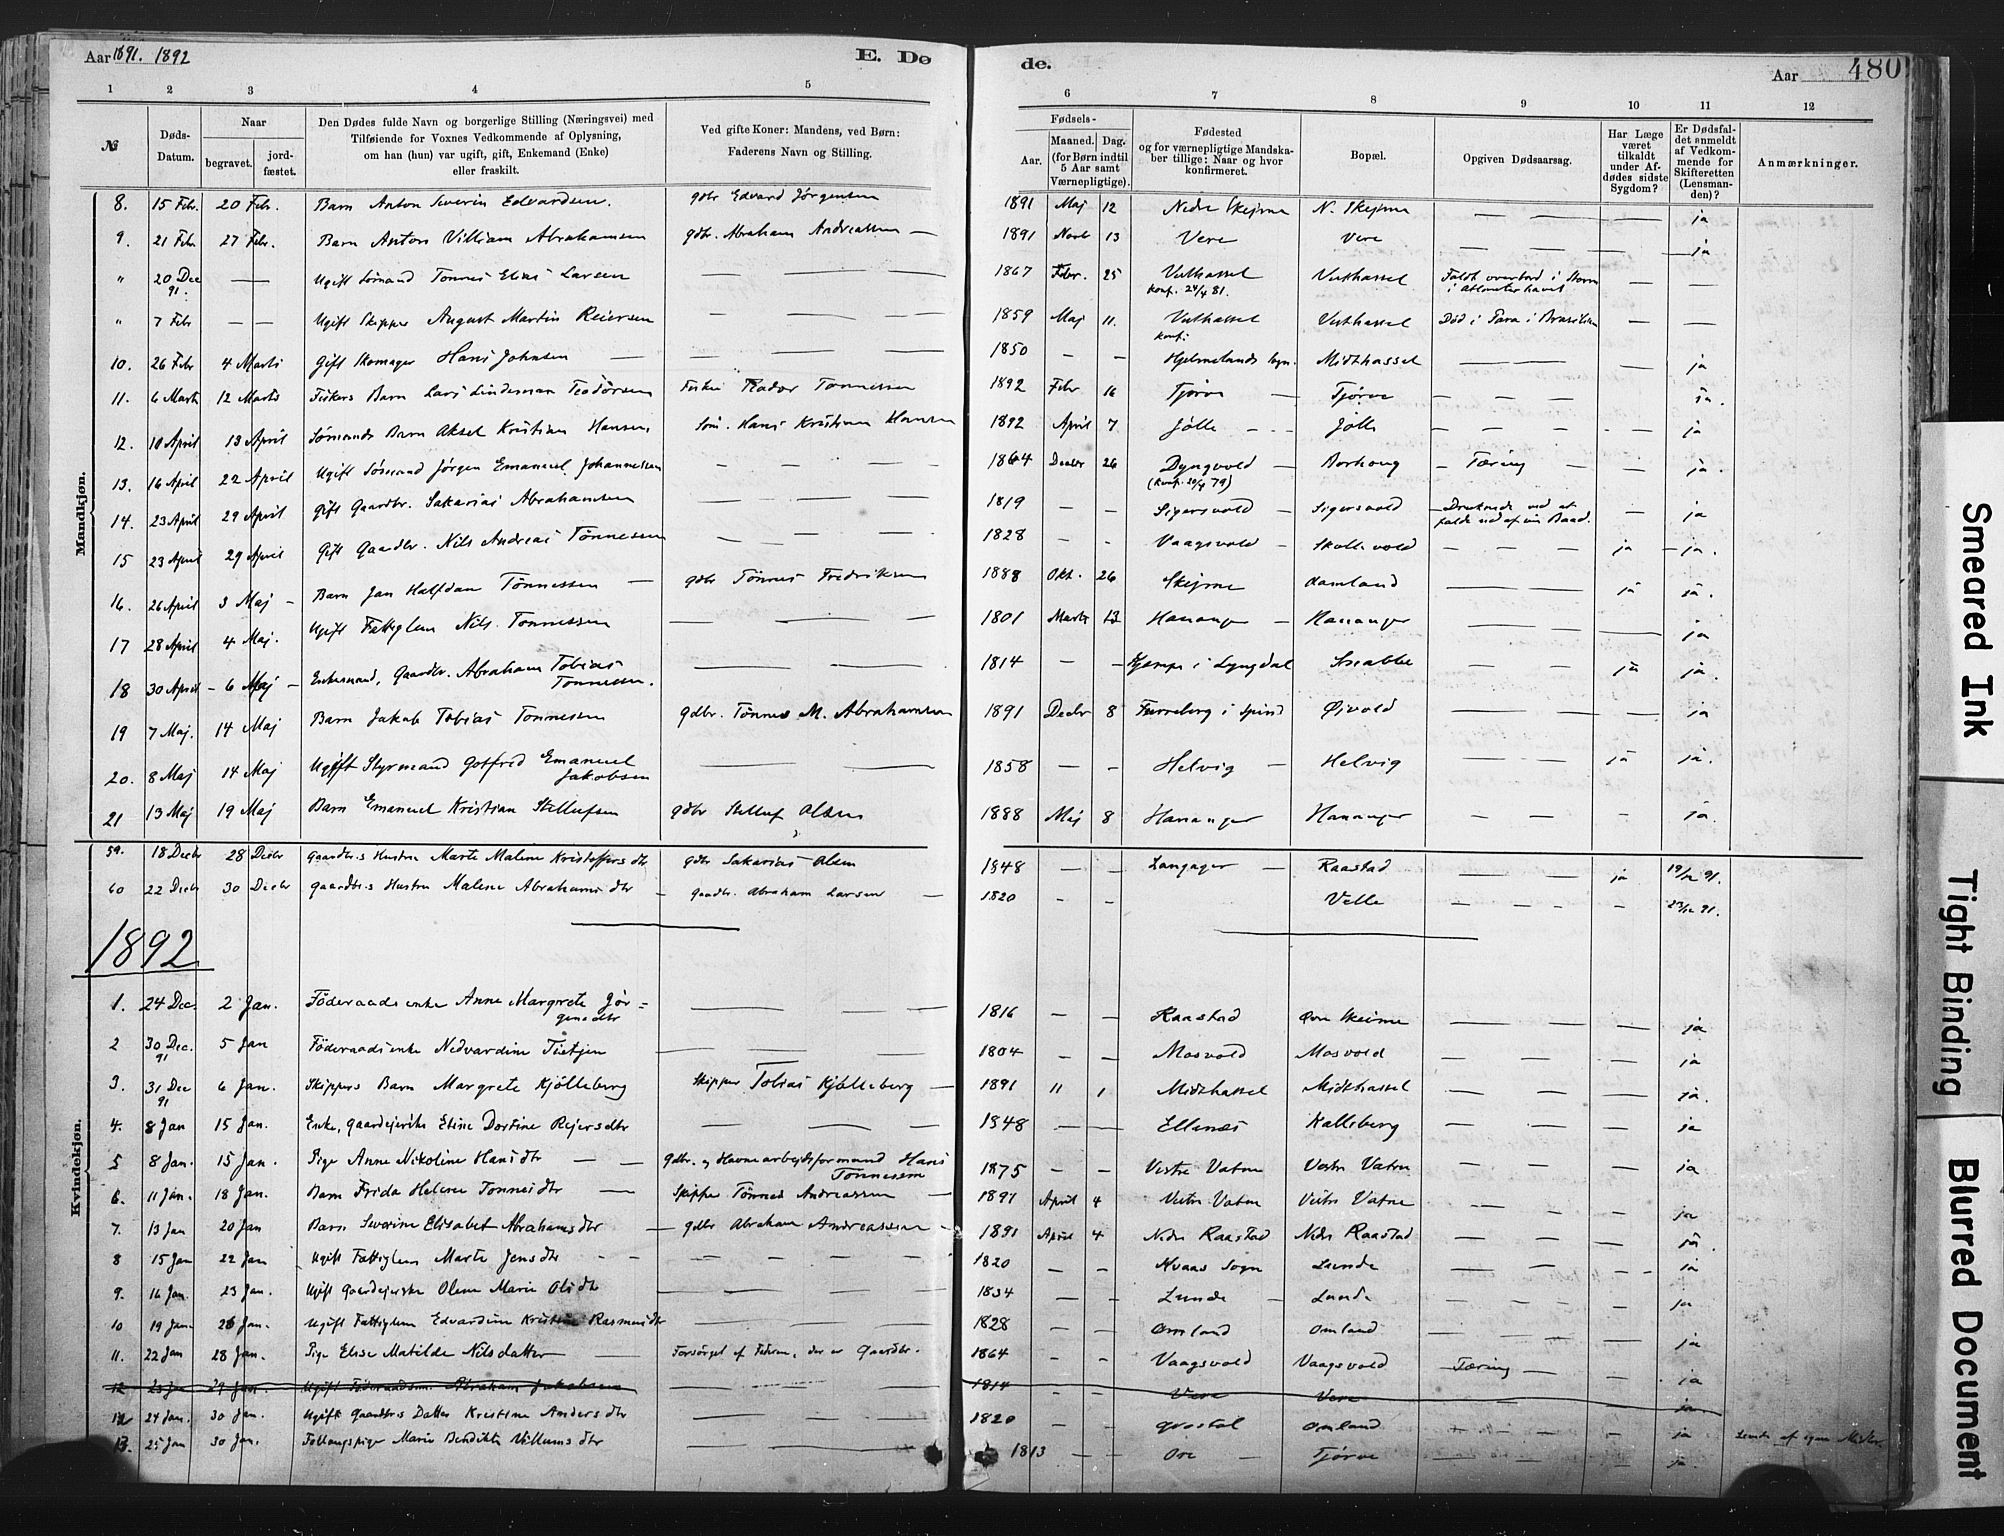 Aar 1891. 1892
E. Dø
de.
Aar
480
1 2 3 4 5
6 7 8 9 10 11 12
№
Døds-Datum.
Naar
begravet.
jord-fæstet.
Den Dødes fulde Navn og borgerlige Stilling (Næringsvei) med
Tilføiende for Voxnes Vedkommende af Oplysning,
om han (hun) var ugift, gift, Enkemand (Enke)
eller fraskilt.
Ved gifte Koner: Mandens, ved Børn:
Faderens Navn og Stilling.
Fødsels-
Aar.
Maaned. Dag.
(for Børn indtil
5 Aar samt
Værnepligtige).
Fødested
og for værnepligtige Mandska-
ber tillige: Naar og hvor
konfirmeret.
Bopæl.
Opgiven Dødsaarsag.
Har Læge
været
tilkaldt
under Af-
dødes sidste
Sygdom?
Er Dødsfal-
det anmeldt
af Vedkom-
mende for
Skifteretten
(Lensman-
den)?
Anmærkninger.
Mandkjøn.
8. 15 Febr. 20 Febr. Barn Anton Severin Edvardsen. gdbr Edvard Jørgensen 1891 Maj 12 Nedre Skejme N. Skejme — — — ja
9. 21 Febr 27 Febr. Barn Anton Villiam Abrahamsen gdbr. Abraham Andreassen — 1891 Novb 13 Vere Vere — — — ja
" 20 Dec 91. — — Ugift Sømand Tønnes Elias Larsen — — — 1867 Febr. 25 Vesthassel konf. 24/4 81. Vesthassel Faldt overbord i Storm i Atlanterhavet — —
" 7 Febr — — Ugift Skipper August Martin Reiersen — — — 1859 Maj 11. Vesthassel konf: Vesthassel Død i Para i Brasilien — —
10. 26 Febr 4 Marts Gift Skomager Hans Johnsen — — — — 1850 — — Hjelmelands sogn. Midthassel — — — ja
11. 6 Marts 12 Marts Fiskers Barn Lars Lindeman Teodorsen Fisker Teodor Tønnessen 1892 Febr 16 Tjørve — Tjørve — — — ja.
12. 10 April 13 April Sømands Barn Aksel Kristian Hansen Søm. Hans Kristian Hansen 1892 April 7 Jølle — Jølle — — — ja
13. 16 April 22 April Ugift Sømand Jørgen Emanuel Johannessen — — — 1864 Decbr 26 Dyngvold — (konf. 20/4 79) Borhoug — Tæring — — ja.
14. 23 April 29 April Gift Gaardbr. Sakarias Abrahamsen — — — 1819 — — Sigersvold — Sigersvold — Druknede ved at falde ud af sin Baad. — ja
15 23 April 29 April Gift Gaardbr. Nils Andreas Tønnesen — — — 1828 — — Vaagsvold — Skollevold — — — ja — ja.
16. 26 April 3 Maj — Barn Jan Halfdan Tønnessen — gdbr Tønnes Fredriksen 1888 Okt. 26 Skejme Aamland — — — ja ja.
17 28 April 4 Maj. Ugift Fattiglem Nils Tønnessen — — — 1801 Marts 13 Hananger — Hananger — — — ja
18 30 April — 6 Maj — Enkemand, Gaardbr. Abraham Tobias Tønnessen. — — — 1814 — — i Lyngdal Snabbe — — ja ja.
19 7 Maj. 14 Maj Barn Jakob Tobias Tønnesen gdbr. Tønnes M. Abrahamsen 1891 Decbr 8 Furreberg i Spind Øjvold — — — ja
20. 8 Maj 14 Maj Ugift Styrmand Gotfred Emanuel Jakobsen — — — 1858 — — Helvig — Helvig — — ja ja.
21 13 Maj 19 Maj Barn Emanuel Kristian Stellufsen gdbr Stelluf Olsen 1888 Maj 8 Hananger Hananger — — — ja.
Kvindekjøn.
59. 18 Decbr 28 Decbr Gaardbr.s Hustru Marte Malene Kristoffersdtr gdbr Sakarias Olsen 1848 — — Langager — Raastad — — ja 19/12 91.
60 22 Decbr 30 Decbr Gaardbr.s Hustru Malene Abrahamsdtr — Gaardbr. Abraham Larsen — 1820 — — Velle — — — 23/12 91.
1892
1. 24 Dec. 2 Jan. Føderaadsenke Anne Margrete Jør-gensdtr — — — 1816 — — Raastad Øvre Skeime — — — ja
2 30 Dec. 91 5 Jan Føderaadsenke Nedvardine Tietjen — — — 1804 — — Mosvold Mosvold — — — ja
3. 31 Dec 91 6 Jan. Skippers Barn Margrete Kjølleberg Skipper Tobias Kjølleberg — 1891 " 1 Midthassel Midthassel — — — ja.
4. 8 Jan 15 Jan. Enke, Gaardejerske Eline Dortine Rejersdtr — — — 1848 — — Ellenes Kalleberg — — — ja
5 8 Jan. 15 Jan. Pige Anne Nikoline Hansdtr — — gdbr. og Havnearbejdsformand Hans Tønnesen 1875 — — Vestre Vatne Vestre Vatne — — — ja
6. 11 Jan. 18 Jan. Barn Frida Helene Tønnesdtr — Skipper Tønnes Andreassen — 1891 April 4 Vestre Vatne Vestre Vatne — — — ja
7. 13 Jan 20 Jan Barn Severine Elisabet Abrahamsdtr — gdbr Abraham Andreassen — 1891 April 4 Nedre Raastad Nedre Raastad — — — ja.
8 15 Jan 22 Jan Ugift Fattiglem Marte Jensdtr — — — — — 1820 — — Kvaas Sogn Lunde — — — ja
9. 16 Jan. 23 Jan. Ugift Gaardejerske Olene Marie Olsdtr — — — 1834 — — Lunde — Lunde — — — ja
10 19 Jan. 26 Jan. Ugift Fattiglem Edvardine Kristine Rasmusdtr — — — 1828 — — Omland Omland — — — ja
11. 22 Jan 28 Jan. Pige Elise Matilde Nilsdatter — Forsørget af Faderen, der er Gaardbr. 1864 — — Vaagsvold Vaagsvold — Tæring — — ja
12 23 Jan 29 Jan. Ugift Føderaadsm. Abraham Jakobsen — — — 1814 — — Vere Vere — — — ja
12 24 Jan. 30 Jan. Ugift Gaardbr.s Datter Kristine Andersdtr — — — 1820 — — Omland — — — ja
13. 25 Jan 30 Jan. Marie Bendikte Villumsdtr — — — 1813 — — Ore — Tjørve — — ja. af egne Midler.
Smeared Ink
Tight Binding
Blurred Document